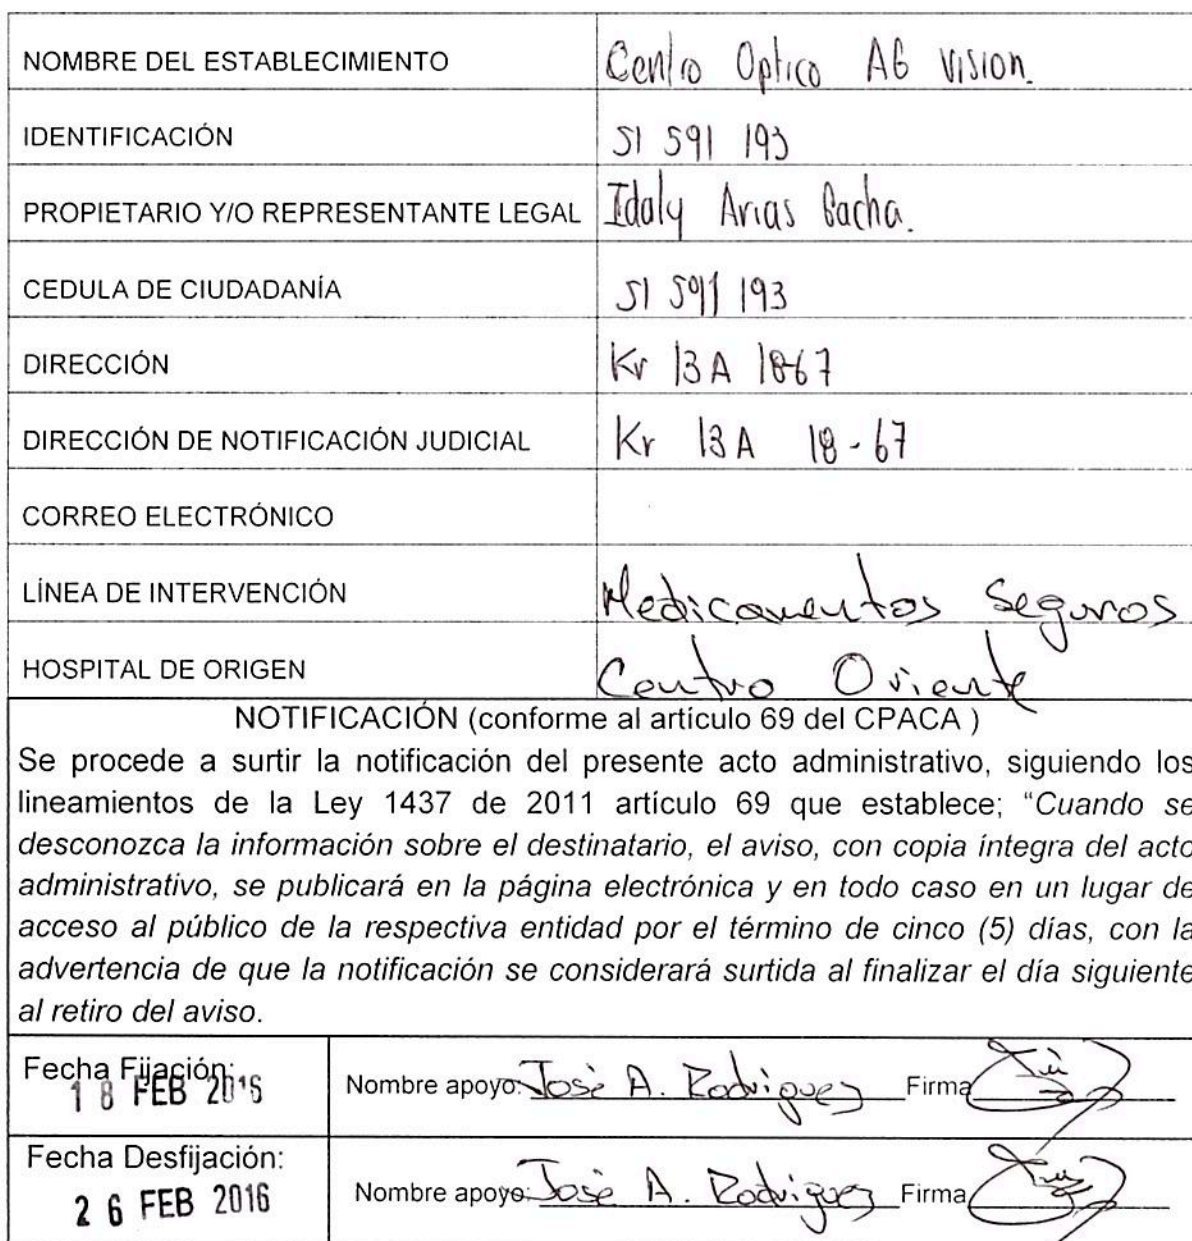 NOMBRE DEL ESTABLECIMIENTO Centro Optico AG Vision.
IDENTIFICACIÓN 51 591 193
PROPIETARIO Y/O REPRESENTANTE LEGAL Idaly Arias Gacha.
CEDULA DE CIUDADANÍA 51 591 193
DIRECCIÓN Kr 13A 18-67
DIRECCIÓN DE NOTIFICACIÓN JUDICIAL Kr 13A 18-67
CORREO ELECTRÓNICO
LÍNEA DE INTERVENCIÓN Medicamentos Seguros
HOSPITAL DE ORIGEN Centro Oriente
NOTIFICACIÓN (conforme al artículo 69 del CPACA )
Se procede a surtir la notificación del presente acto administrativo, siguiendo los
lineamientos de la Ley 1437 de 2011 artículo 69 que establece; “Cuando se
desconozca la información sobre el destinatario, el aviso, con copia íntegra del acto
administrativo, se publicará en la página electrónica y en todo caso en un lugar de
acceso al público de la respectiva entidad por el término de cinco (5) días, con la
advertencia de que la notificación se considerará surtida al finalizar el día siguiente
al retiro del aviso.
Fecha Fijación:
18 FEB 2016
Nombre apoyo: José A. Rodriguez Firma
Fecha Desfijación:
26 FEB 2016
Nombre apoyo: José A. Rodriguez Firma